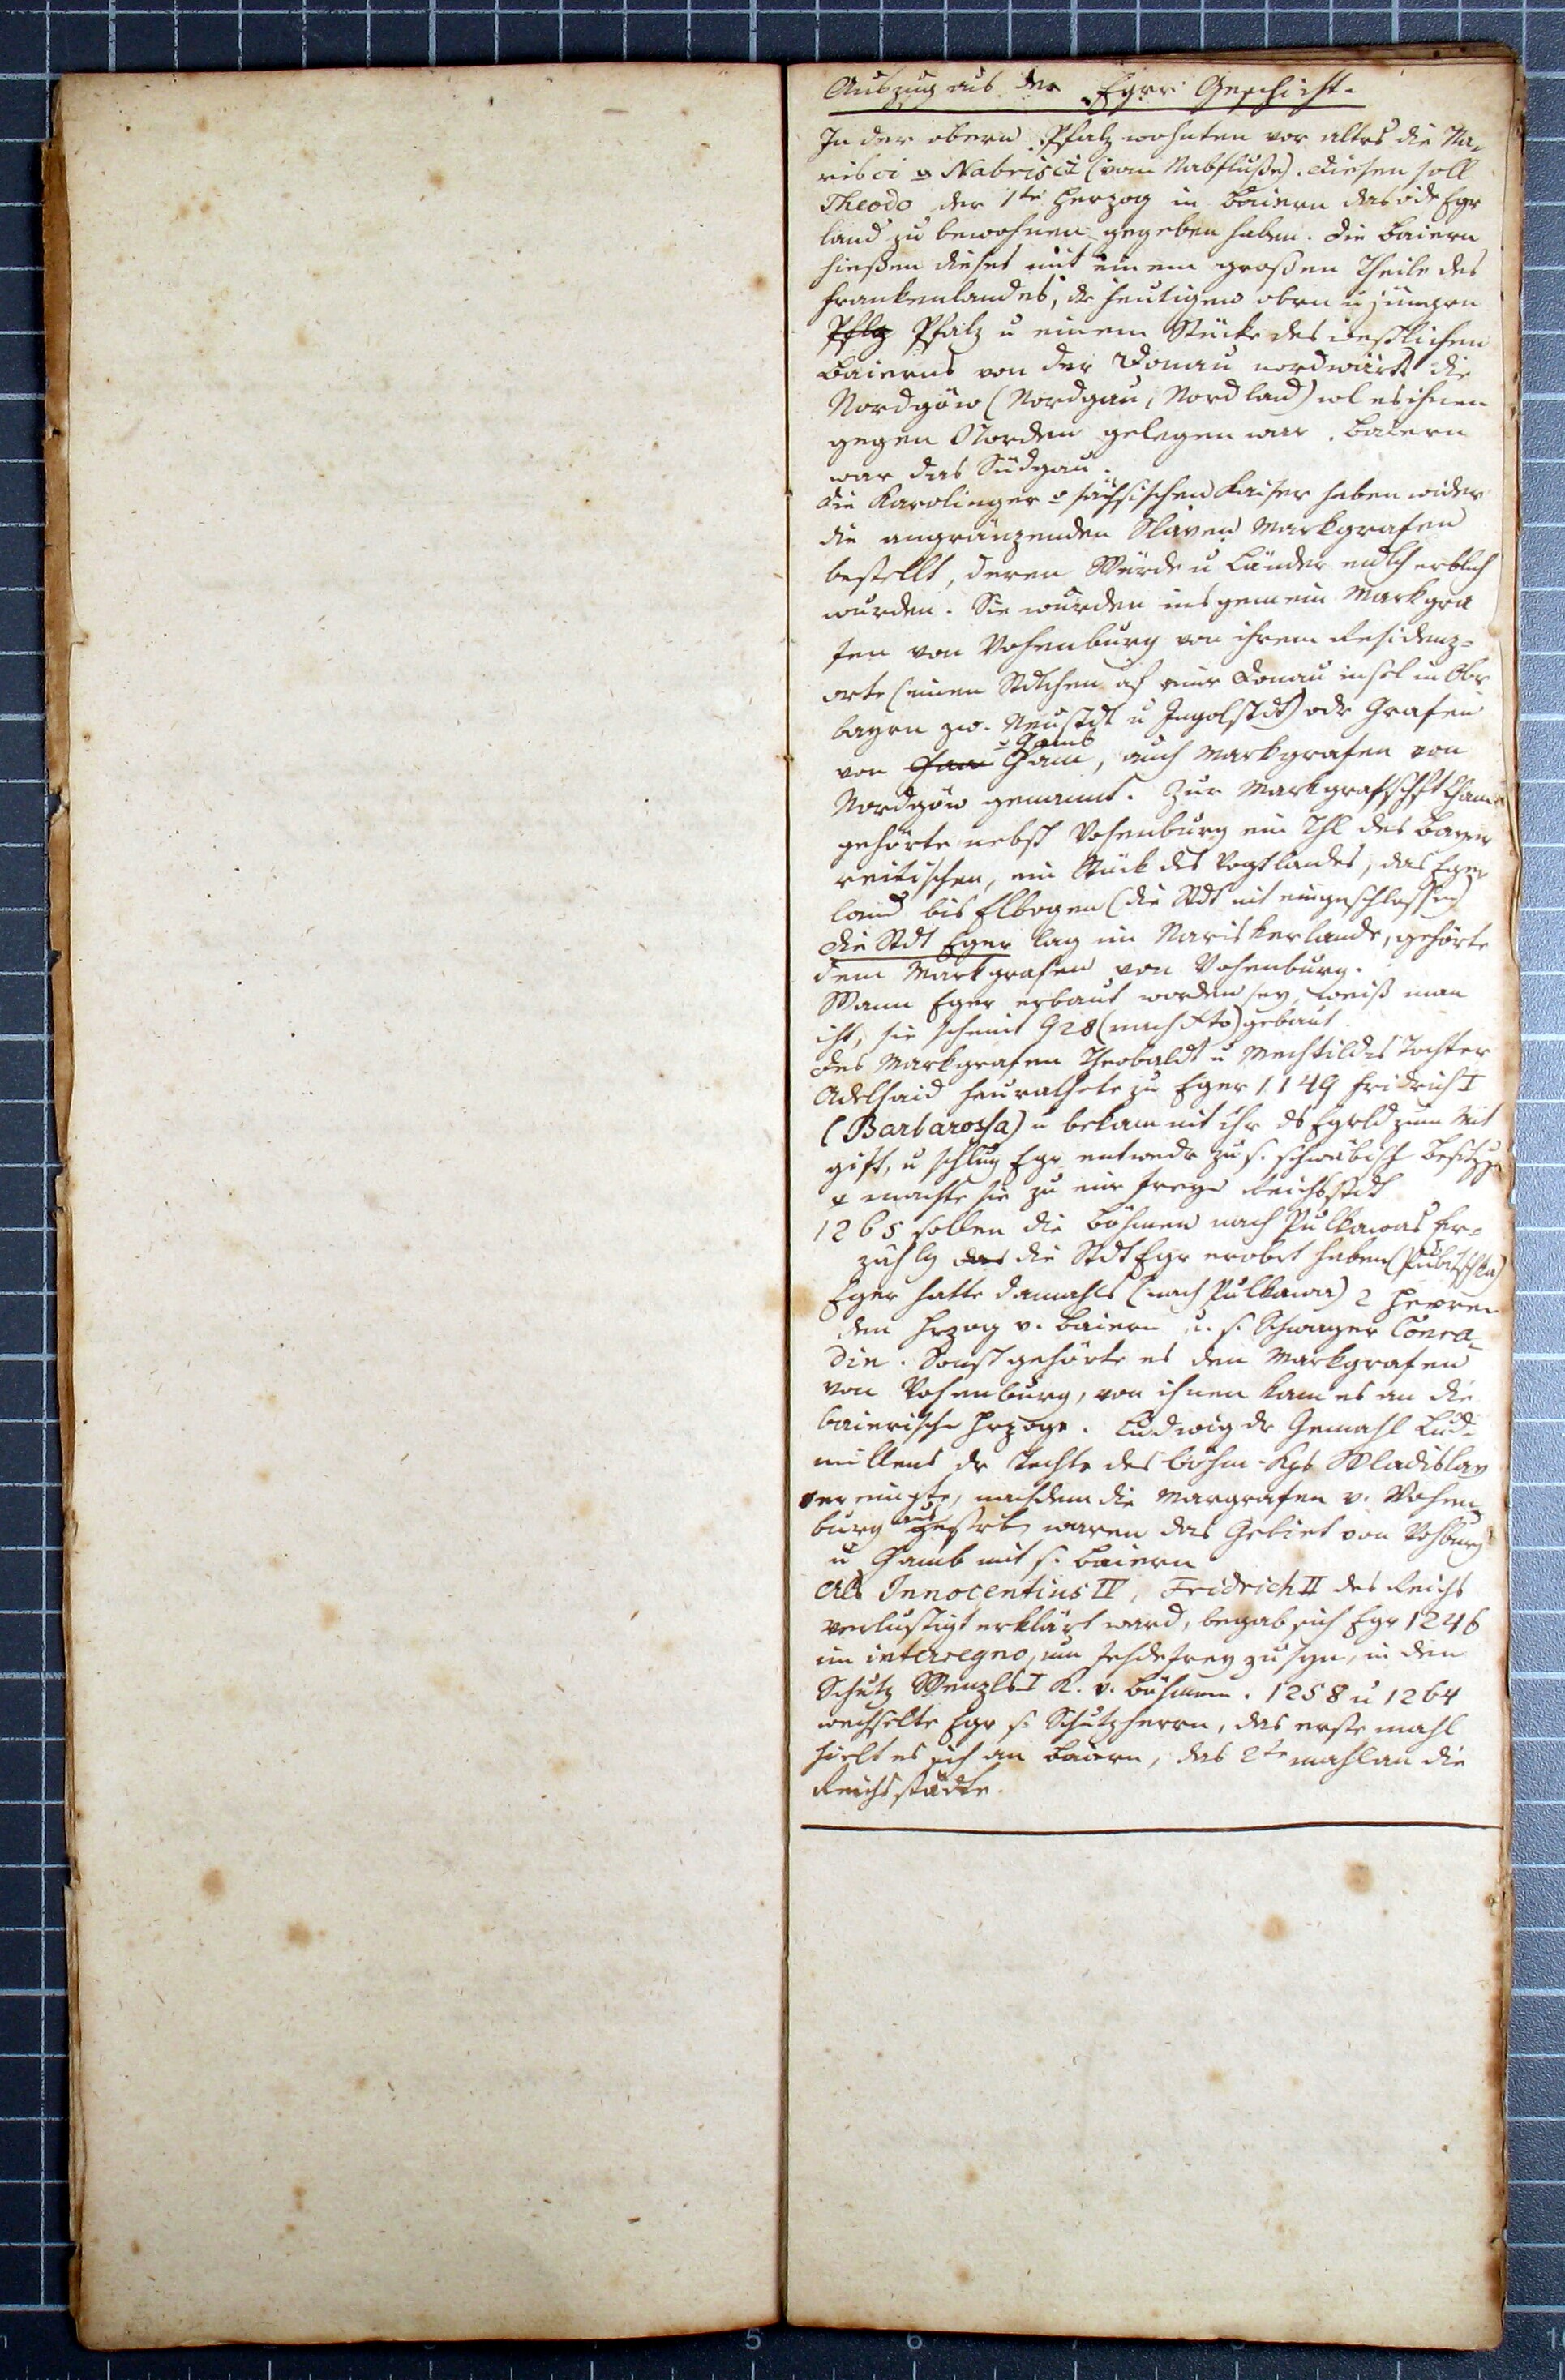 Auszug aus der Egrer Geschicht.
In der obern Pfalz wohnten vor alters die Na-
risci o Nabriscii (vom Nabfluße). Diesen soll
Theodo der 1te Herzog in Baiern das öde Egr
land zu bewohnen gegeben haben. Die Baiern
hießen dieses mit einem großen Theile des
Frankenlandes, dr heutigen obrn u jüngrn
Pflz Pfalz u einem Stücke des westlichen
Baierns von der Donau nordwärts die
Nordgöw (Nordgau, Nordland) wl es ihnen
gegen Norden gelegen war. Baiern
war das Südgau.
Die Karolinger o sächsischen Kaiser haben wider
die angränzenden Slaven Markgrafen
bestellt, deren Würde u Länder endlch erblich
wurden. Sie wurden insgemein Markgra
fen von Vohenburg von ihrem Residenz-
orte (einem Stdtchen auf einr Donauinsel in Obr
bayrn zw. Neustdt u Ingolstdt) odr Grafen
von Cham o Camb, auch Markgrafen von
Nordgöw genannt. Zur Markgrafschft Cham
gehörte nebst Vohenburg ein Thl des Bayer
reitischen, ein Stück des Vogtlandes, das Eger
land bis Elbogen (die Stdt mit eingeschlossen)
Die Stdt Eger lag im Nariskerlande, gehörte
dem Markgrafen von Vohenburg.
Wann Eger erbaut worden sey, weiß man
icht, sie scheint 928 (nach Xto) gebaut
Des Markgrafen Theobaldt u Mechtildis Tochter
Adelhaid heurathete zu Eger 1149 Fridrich I
(Barbarossa) u bekam mit ihr ds Egrld zum Mit
gift, u schlug Egr entwedr zu s. schwäbisch Besitzgn
o machte sie zu einr freyen Reichsstdt
1265 sollen die Böhmen nach Pulkawas Er-
zählg das die Stdt Egr erobrt haben (Pubitschka)
Eger hatte damahls (nach Pulkawa) 2 Herren
den Hrzog v. Baiern u. s. Schwager Conra-
din. Sonst gehörte es den Markgrafen
von Vohenburg, von ihnen kam es an die
baierische Hrzoge. Ludwig dr Gemahl Lud-
millens dr Tochtr des böhm. Kgs Wladislav
vereinigte, nachdem die Margrafen v. Vohen-
burg ausgestrbn waren das Gebiet von Vohburg
u Camb mit s. Baiern
Als Innocentius IV, Fridrich II des Reichs
verlustigt erklärt ward, begab sich Egr 1246
im interregno, um fehdefrey zu seyn, in den
Schutz Wenzls I K. v. Böhmen. 1258 u 1264
wechselte Egr s. Schutzherrn, das erste mahl
hielt es sich an Baiern, das 2te mahl an die
Reichsstädte.